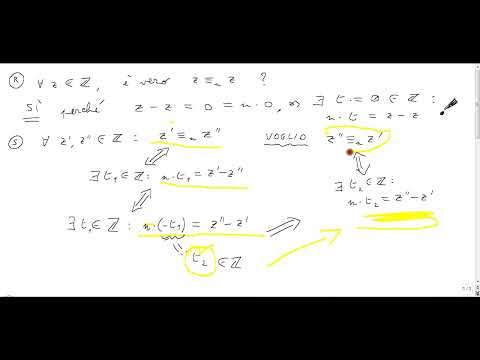 Ⓡ ∀ z ∈ ℤ, è vero z ≡ₙ z ?
SÌ perché z - z = 0 = n·0, ⇒ ∃ t := 0 ∈ ℤ :
n·t = z - z
Ⓢ ∀ z', z'' ∈ ℤ : z' ≡ₙ z'' VOGLIO z'' ≡ₙ z'
∃ t₁ ∈ ℤ : n·t₁ = z' - z''
∃ t₂ ∈ ℤ :
n·t₂ = z'' - z'
∃ t₁ ∈ ℤ : n·(-t₁) = z'' - z'
t₂ ∈ ℤ